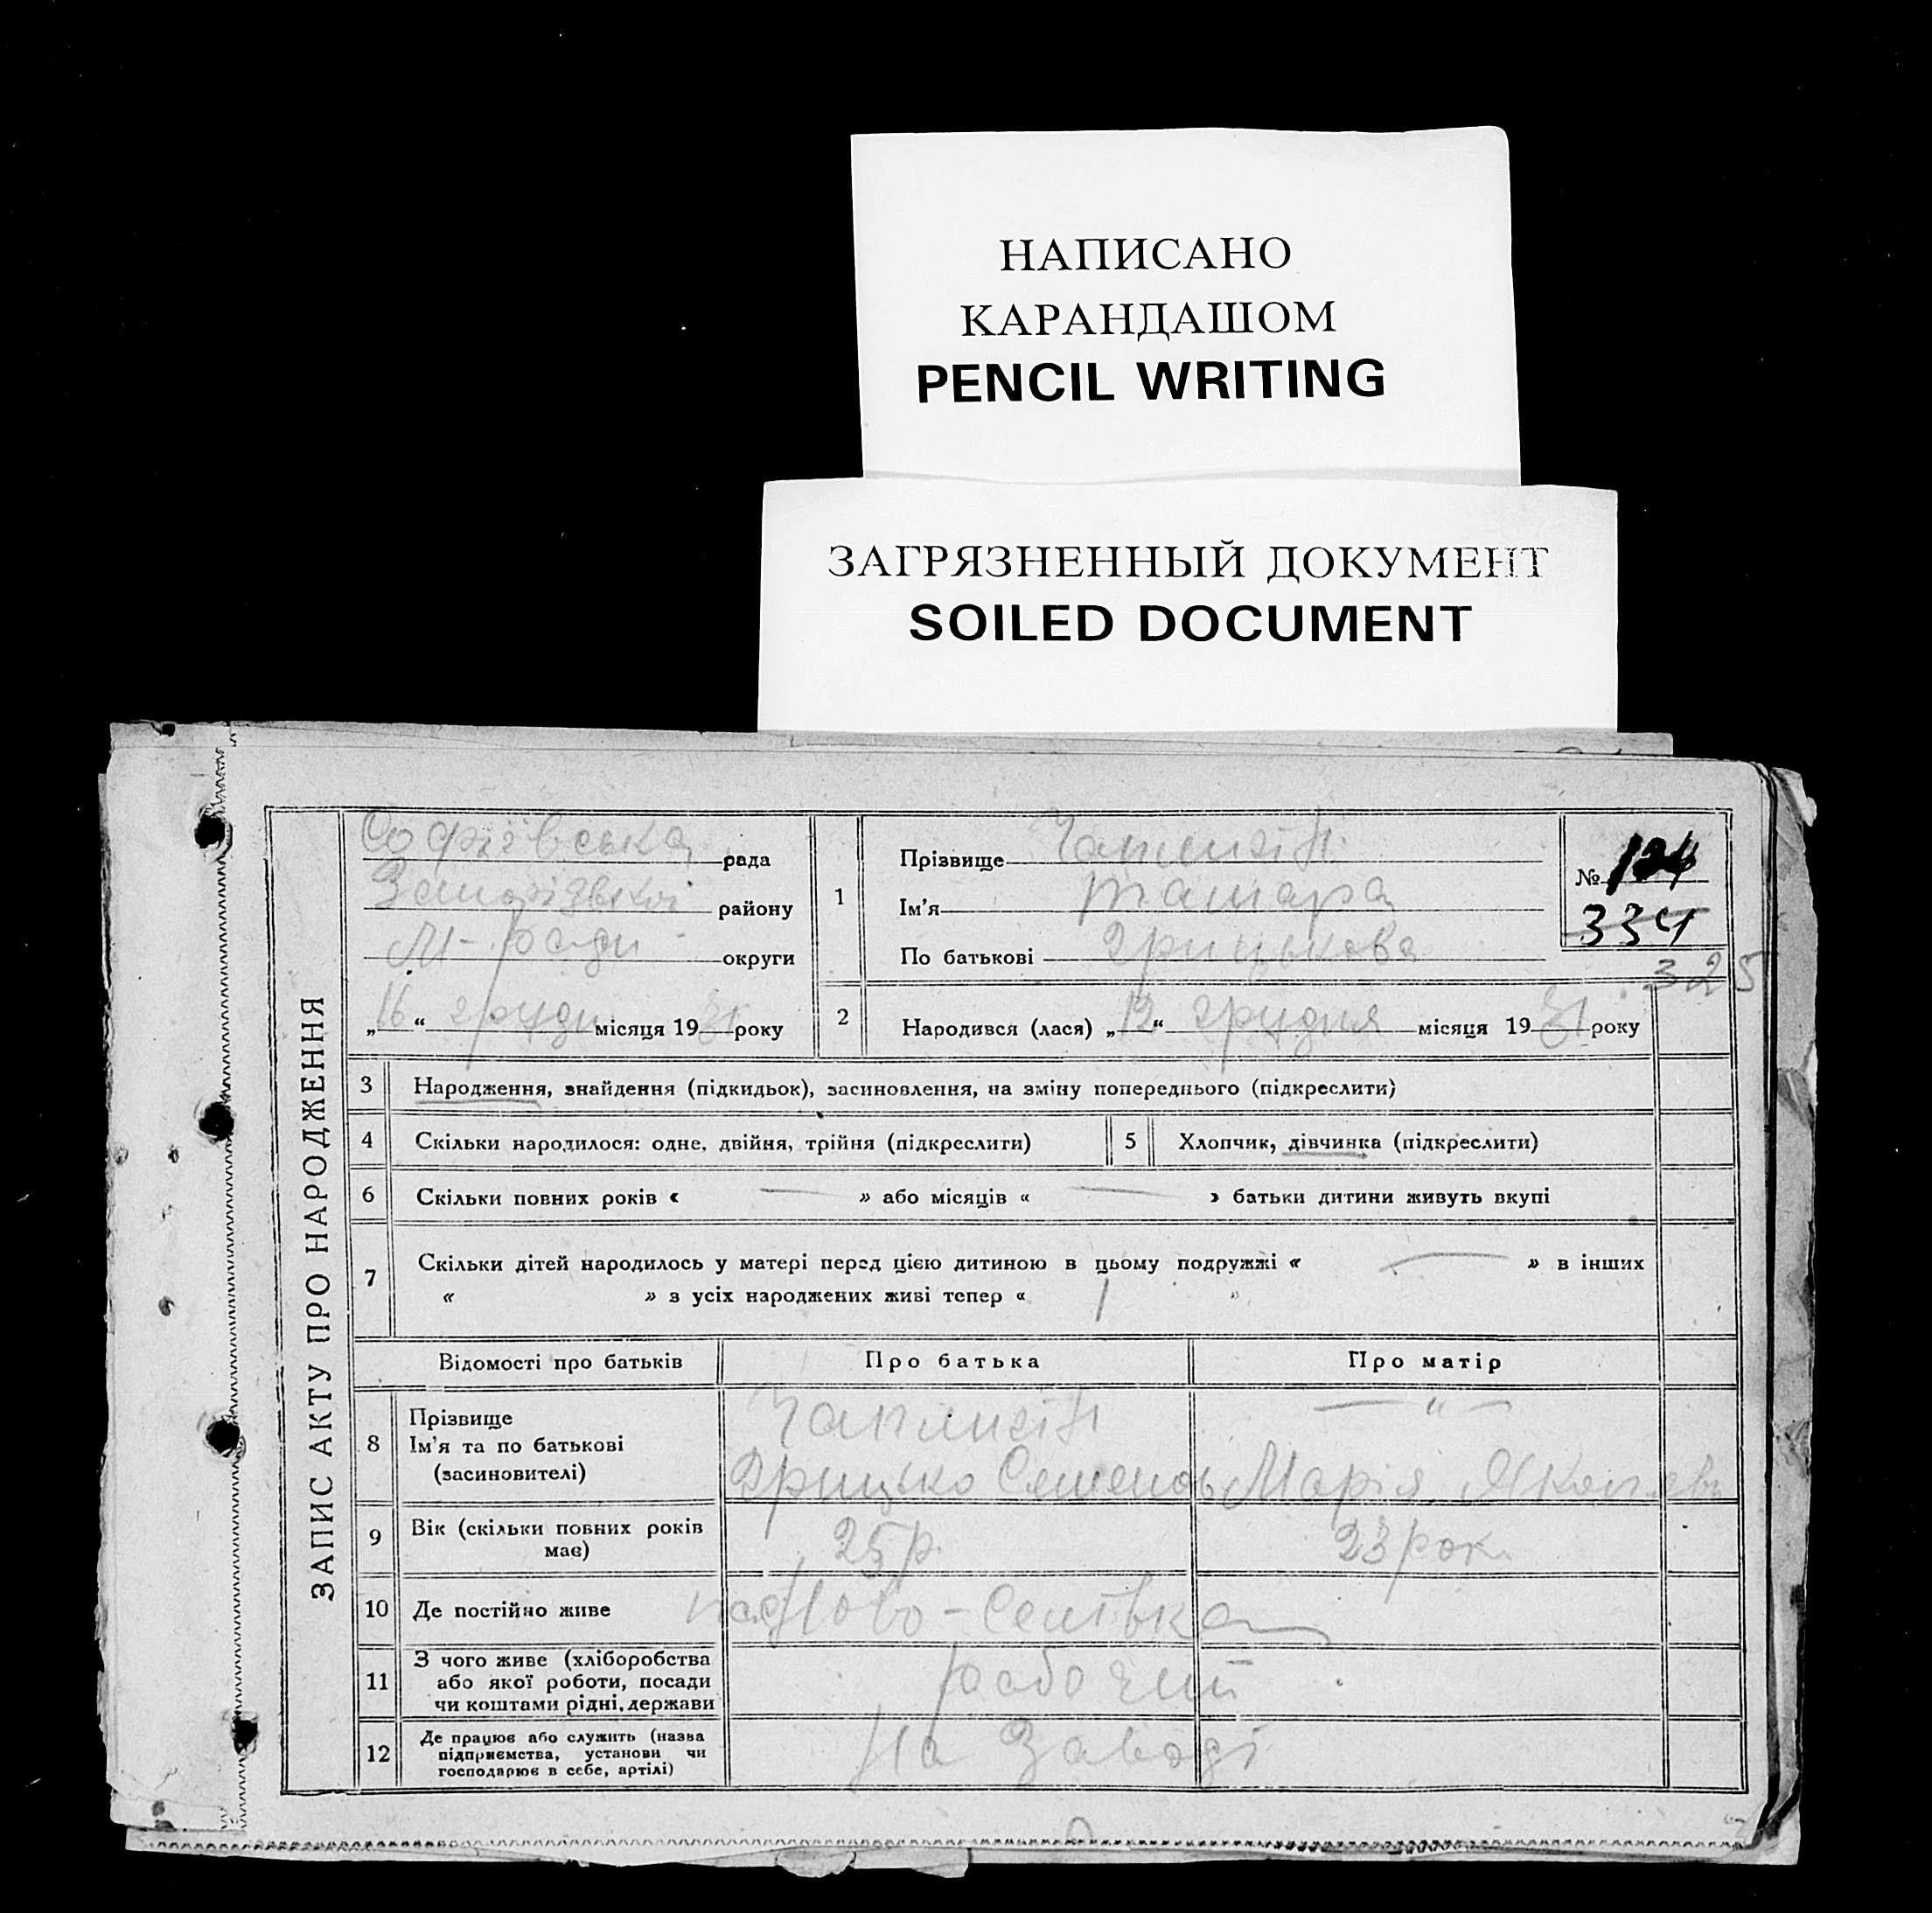 НАПИСАНО
КАРАНДАШОМ
PENCIL WRITING
ЗАГРЯЗНЕННЫЙ ДОКУМЕНТ
SOILED DOCUMENT
ЗАПИС АКТУ ПРО НАРОДЖЕННЯ
Софіївська рада
району
М-ради округи
„16“ грудн місяця 1931 року
1
Прізвище Чаплигін
Ім'я Тамара
По батькові Грицькова
№ 124
334
325
2
Народився (лася) „12“ грудня місяця 1931 року
3 Народження, знайдення (підкидьок), засиновлення, на зміну попереднього (підкреслити)
4 Скільки народилося: одне, двійня, трійня (підкреслити)
5 Хлопчик, дівчинка (підкреслити)
6 Скільки повних років « — » або місяців « — » батьки дитини живуть вкупі
7 Скільки дітей народилось у матері перед цією дитиною в цьому подружжі « — » в інших
« » з усіх народжених живі тепер « 1 »
Відомості про батьків Про батька Про матір
8 Прізвище
Ім'я та по батькові
(засиновителі)
Чаплигін — „ —
Грицько Семенов Марія
9 Вік (скільки повних років
має)
25 р. 23 рок.
10 Де постійно живе Ново-Селівка
11 З чого живе (хліборобства
або якої роботи, посади
чи коштами рідні, держави
рабочий
12 Де працює або служить (назва
підприємства, установи чи
господарює в себе, артілі)
На Заводі